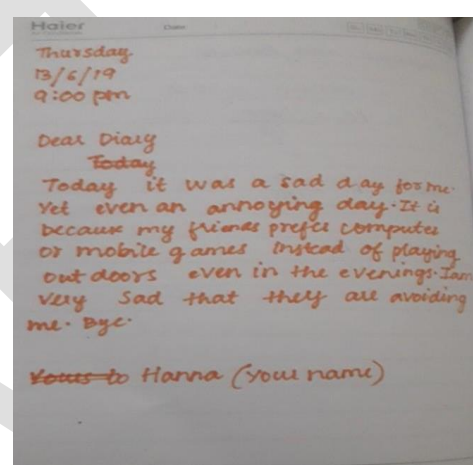 Haier
Date:
Thursday
13/6/19
9:00 pm
Dear Diary
Today
Today it was a sad day for me.
Yet even an annoying day. It is
because my friends prefer computer
or mobile games instead of playing
outdoors even in the evenings. I am
very sad that they are avoiding
me. Bye.
Yours to Hanna (your name)